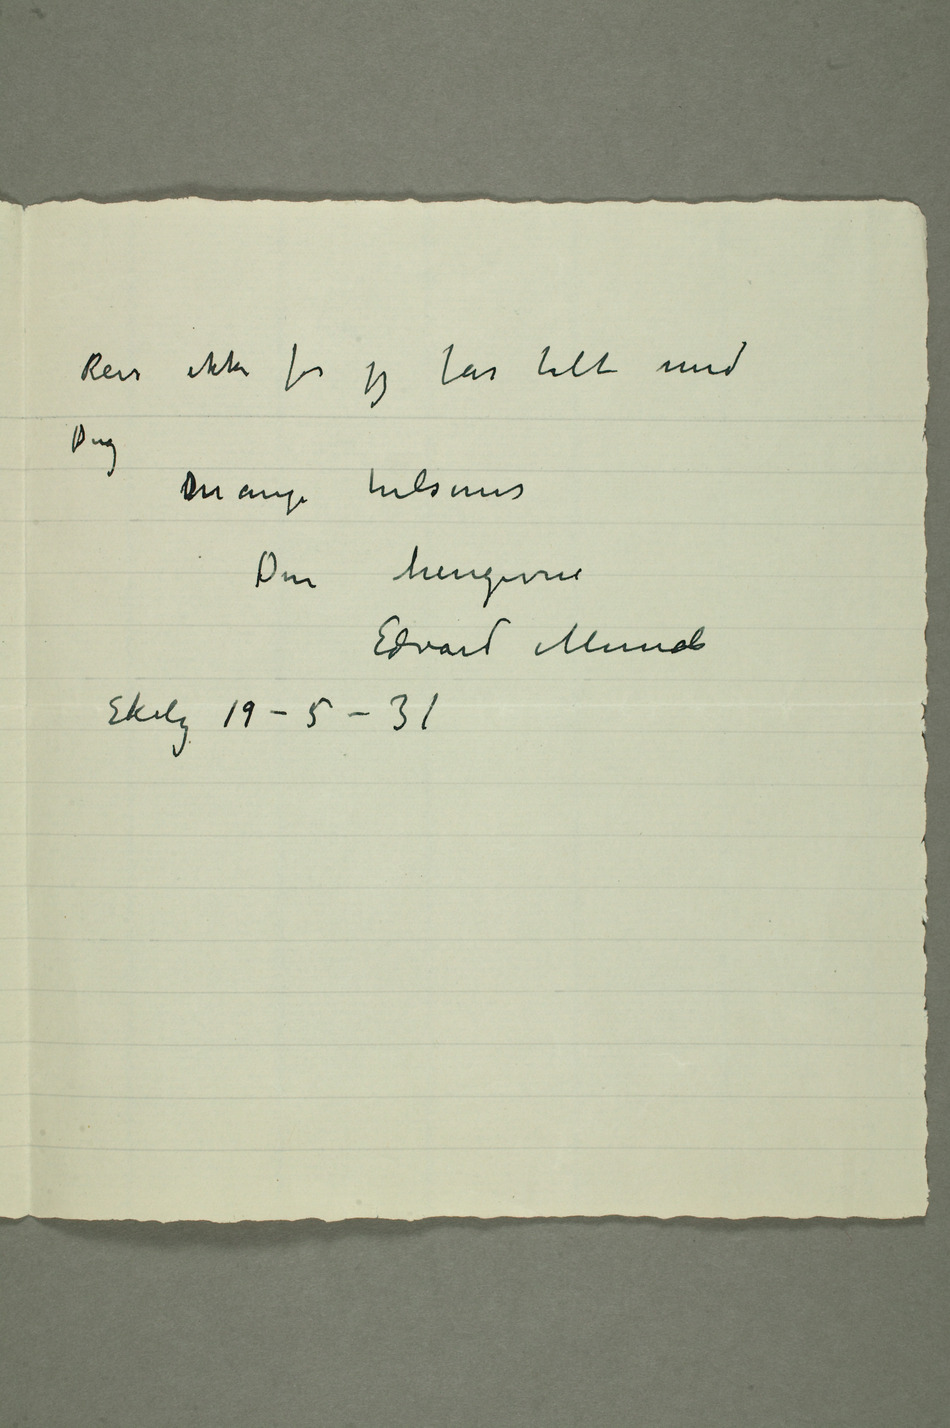 Reis ikke før jeg har talt med
Dig
Mange hilsener
Din hengivne
Edvard Munch
Ekely 19 – 5 – 31